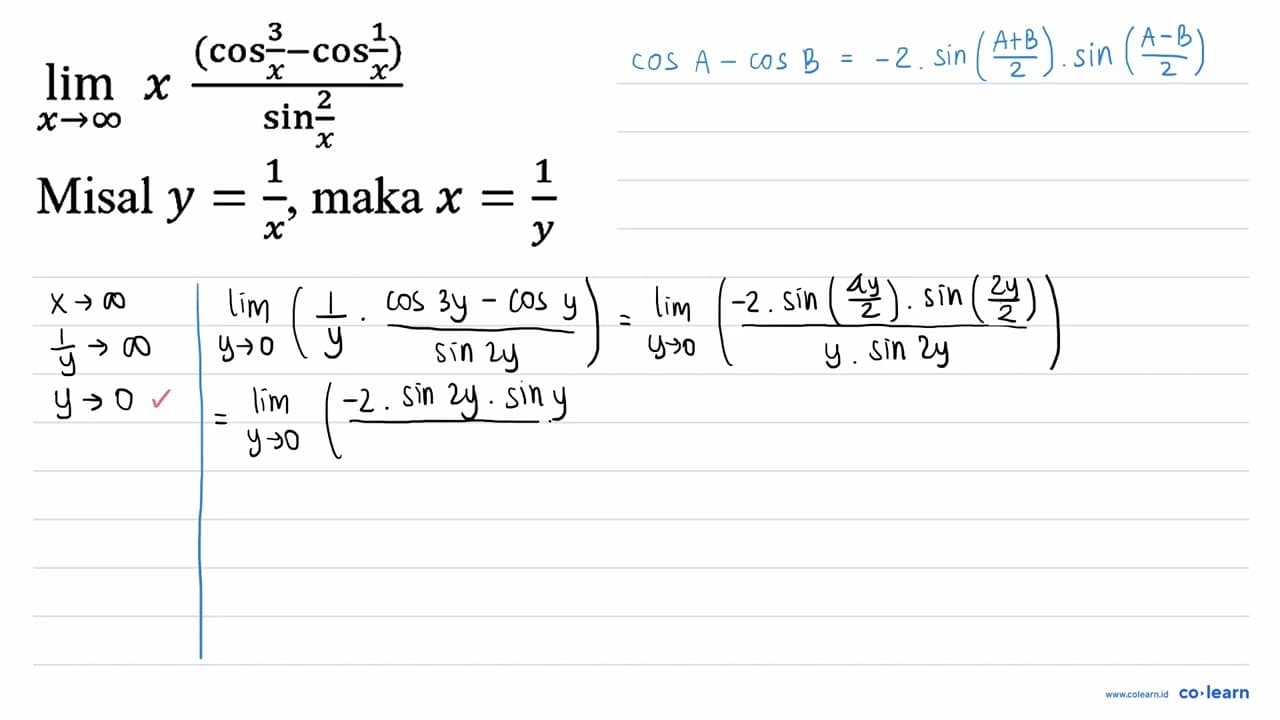 lim x→∞ x (cos 3/x − cos 1/x) / sin 2/x
cos A − cos B = −2 . sin ((A+B)/2) . sin ((A−B)/2)
Misal y = 1/x, maka x = 1/y
x → ∞
1/y → ∞
y → 0 ✓
lim y→0 (1/y . (cos 3y − cos y) / sin 2y) = lim y→0 ((−2 . sin (4y/2) . sin (2y/2)) / (y . sin 2y))
= lim y→0 (−2 . sin 2y . sin y
www.colearn.id co·learn